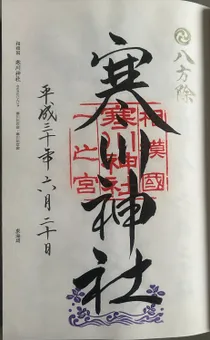 八方除
寒川神社
相模國
寒川神社
一之宮
平成三十年六月二十日